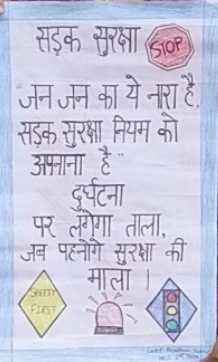 सड़क सुरक्षा
STOP
"जन जन का ये नारा है,
सड़क सुरक्षा नियम को
अपनाना है"
दुर्घटना
पर लगेगा ताला,
जब पहनोगे सुरक्षा की
माला ।
SAFETY
FIRST